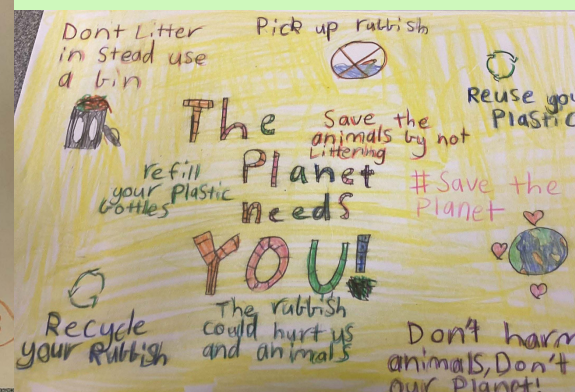 Dont Litter
in stead use
a bin
Pick up rubbish
Reuse you
Plastic
The
Planet
needs
YOU!
Save the
animals by not
Littering
refill
your Plastic
bottles
#Save the
Planet
Recycle
your Rubbish
The rubbish
could hurt us
and animals
Don't harm
animals, Don't
our Planet!